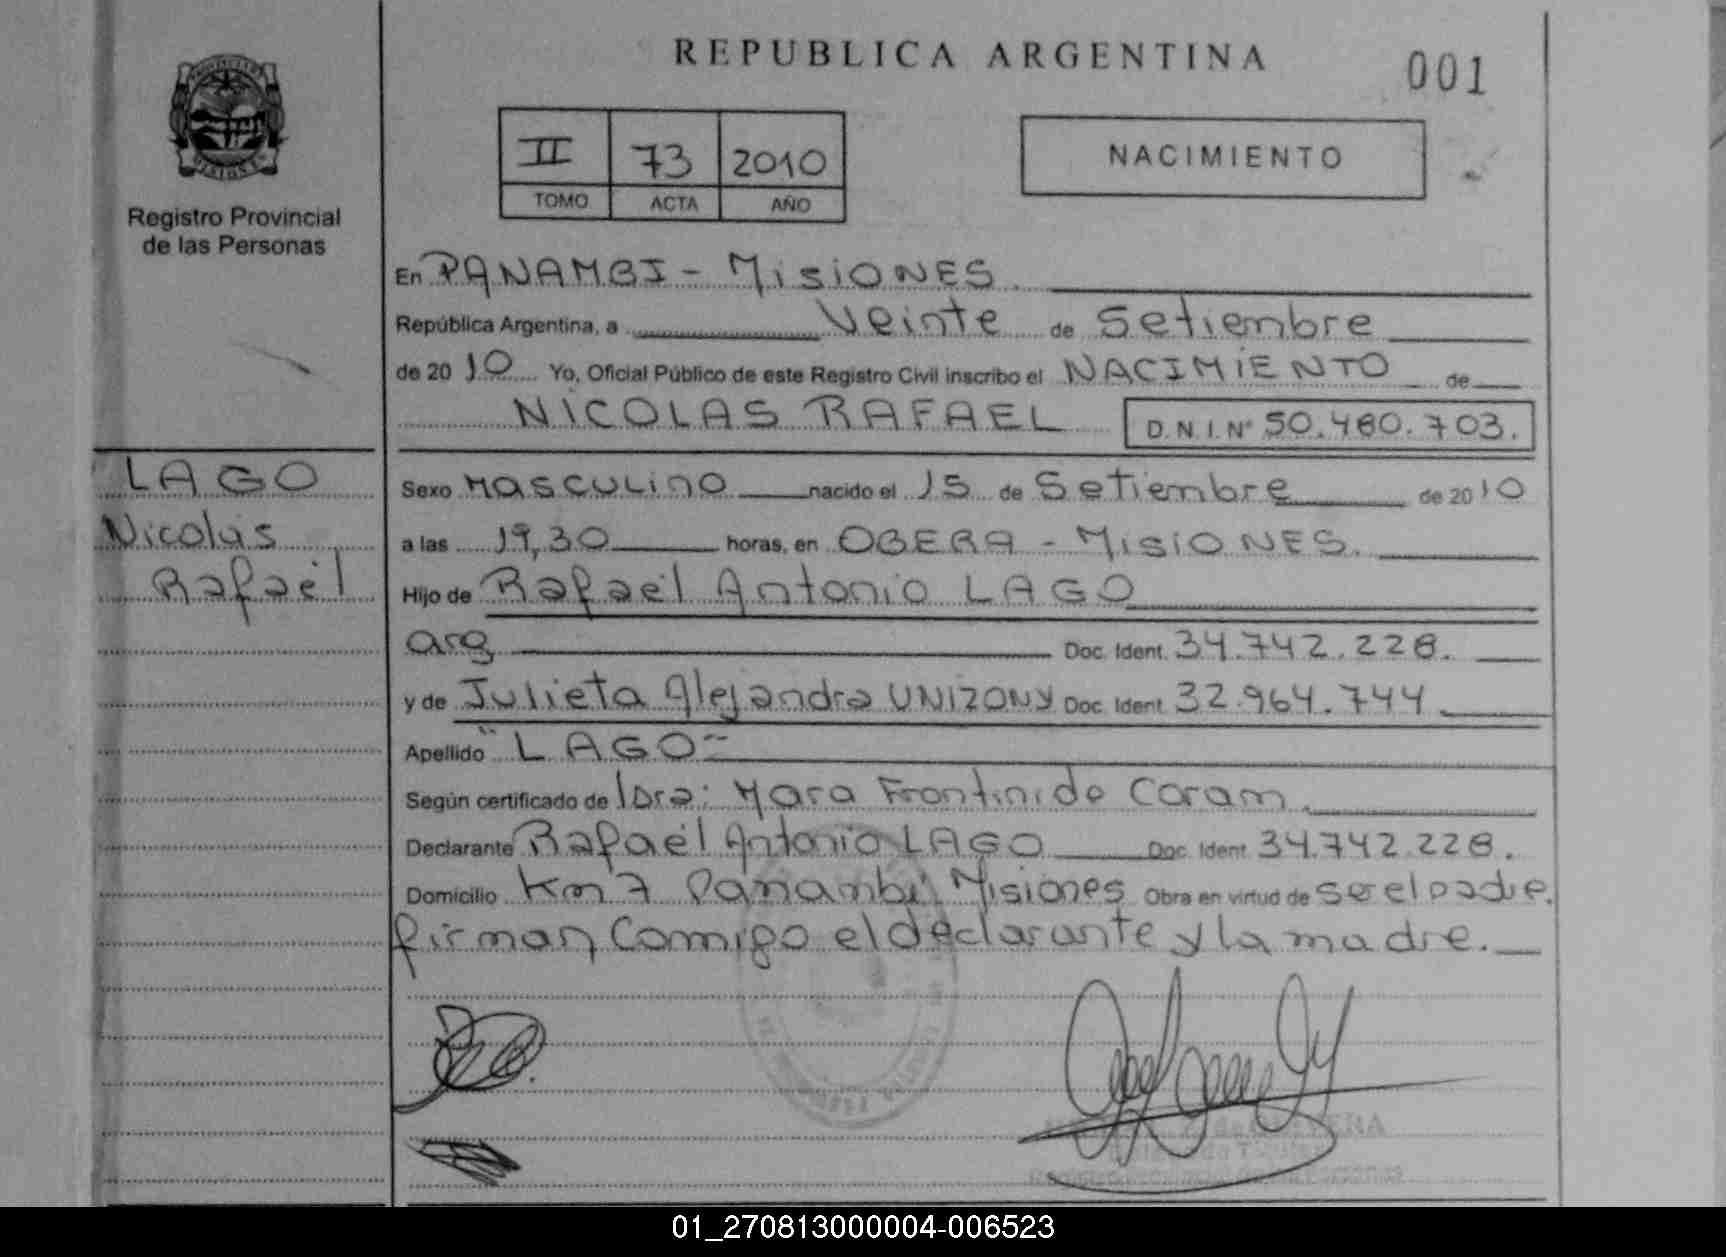 REPUBLICA ARGENTINA
001
II 73 2010
TOMO ACTA AÑO
NACIMIENTO
Registro Provincial
de las Personas
En PANAMBI - MISIONES.
República Argentina, a Veinte de Setiembre
de 2010 Yo, Oficial Público de este Registro Civil inscribo el NACIMIENTO de
NICOLAS RAFAEL D.N.I. Nº 50.480.703.
LAGO
Nicolás
Rafael
Sexo Masculino nacido el 15 de Setiembre de 2010
a las 19,30 horas, en OBERA - MISIONES.
Hijo de Rafael Antonio LAGO
arg Doc. Ident. 34.742.228.
y de Julieta Alejandra UNIZONY Doc. Ident. 32.964.744
Apellido "LAGO"
Según certificado de Dra: Mara Frontini de Coram.
Declarante Rafael Antonio LAGO Doc. Ident. 34.742.228.
Domicilio Km 7 Panambí Misiones Obra en virtud de ser el padre.
firman, Conmigo el declarante y la madre.
01_270813000004-006523